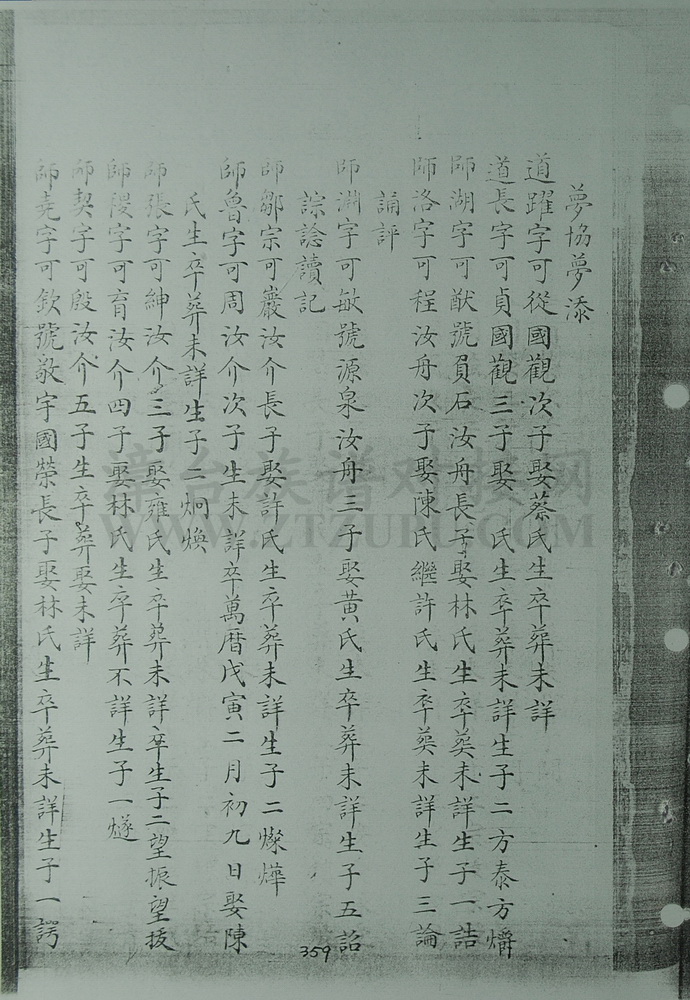 夢協夢添
道躍字可從國觀次子娶蔡氏生卒葬未詳
道長字可貞國觀三子娶 氏生卒葬未詳生子二方泰方爝
師湖字可猷號員石汝舟長子娶林氏生卒葬未詳生子一詰
師洛字可程汝舟次子娶陳氏繼許氏生卒葬未詳生子三論
誦評
師淵字可敏號源泉汝舟三子娶黃氏生卒葬未詳生子五詔
諒諗讀記
師鄒宗可巖汝介長子娶許氏生卒葬未詳生子二燦燁
師魯字可周汝介次子生未詳卒萬曆戊寅二月初九日娶陳
氏生卒葬未詳生子二炯煥
師張字可紳汝介三子娶雍氏生卒葬未詳卒生子二望振望援
師隉字可育汝介四子娶林氏生卒葬不詳生子一燧
師契字可殷汝介五子生卒葬娶未詳
師堯字可欽號敬宇國榮長子娶林氏生卒葬未詳生子一諤
359
漳台族谱对接网
WWW.ZTZUPU.COM